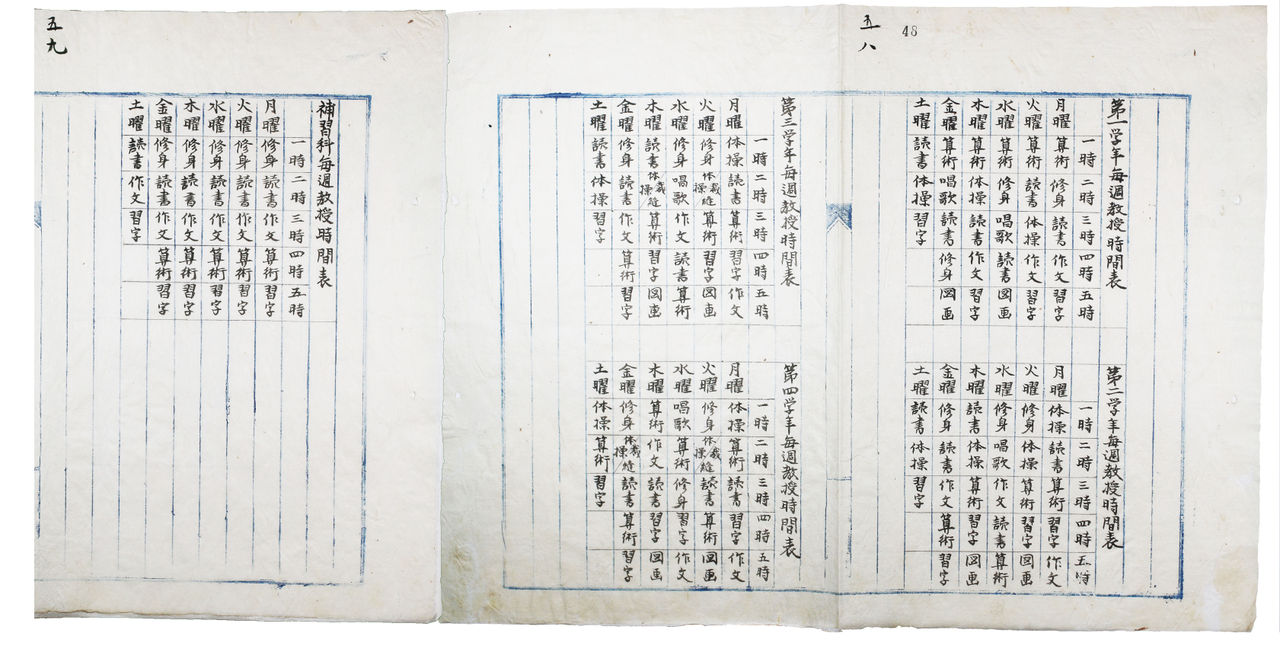 五八
48
第一学年毎週教授時間表
一時 二時 三時 四時 五時
月曜 算術 修身 読書 作文 習字
火曜 算術 読書 体操 作文 習字
水曜 算術 修身 唱歌 読書 図画
木曜 算術 体操 読書 作文 習字
金曜 算術 唱歌 読書 修身 図画
土曜 読書 体操 習字
第二学年毎週教授時間表
一時 二時 三時 四時 五時
月曜 体操 読書 算術 習字 作文
火曜 修身 体操 算術 習字 図画
水曜 修身 唱歌 作文 読書 算術
木曜 読書 体操 算術 習字 図画
金曜 修身 読書 作文 算術 習字
土曜 読書 体操 習字
第三学年毎週教授時間表
一時 二時 三時 四時 五時
月曜 体操 読書 算術 習字 作文
火曜 修身 裁縫 体操 算術 習字 図画
水曜 修身 唱歌 作文 読書 算術
木曜 読書 裁縫 体操 算術 習字 図画
金曜 修身 読書 作文 算術 習字
土曜 読書 体操 習字
第四学年毎週教授時間表
一時 二時 三時 四時 五時
月曜 体操 算術 読書 習字 作文
火曜 修身 裁縫 体操 読書 算術 図画
水曜 唱歌 算術 修身 習字 作文
木曜 算術 作文 読書 習字 図画
金曜 修身 裁縫 体操 読書 算術 習字
土曜 体操 算術 習字
五九
補習科毎週教授時間表
一時 二時 三時 四時 五時
月曜 修身 読書 作文 算術 習字
火曜 修身 読書 作文 算術 習字
水曜 修身 読書 作文 算術 習字
木曜 修身 読書 作文 算術 習字
金曜 修身 読書 作文 算術 習字
土曜 読書 作文 習字